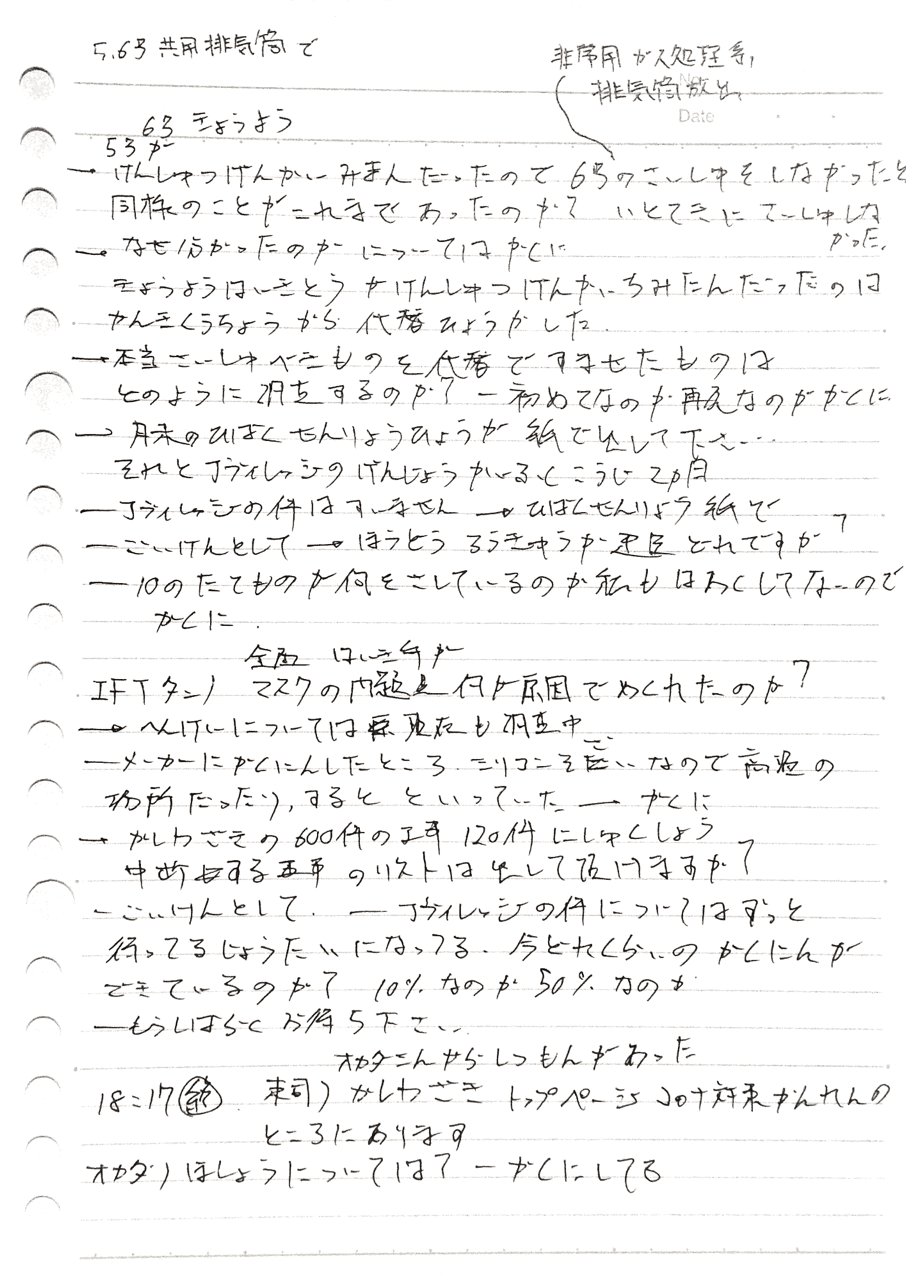 5.6号共用排気筒で
非常用ガス処理系,
排気筒放出,
No
Date
6号きょうよう
5号が
→ けんしゅつげんかいみまんだったので 6号のさいしゅをしなかったと
同様のことがこれまであったのか? いとてきにさいしゅしな
かった.
→ なぜ分かったのかについてはかくに
きょうようはいきとうがけんしゅつげんかいちみたんだったのは
かんきくうちょうから代替ひょうかした.
→ 本当さいしゅべきものを代替ですませたものは
どのように調査するのか? ー初めてなのか再発なのがかくに
→ 月末のひばくせんりょうひょうが紙で出して下さい…
それとJヴィレッジのげんじょうかいふくこうじ2か月
ーJヴィレッジの件はすいません → ひばくせんりょう紙で
ーごいけんとして → ほうとう どれですか?
ー10のたてものが何をさしているのか私もはあくしてないので
かくに.
全面 はいき年が
IFTタン) マスクの問題 何が原因でめくれたのか?
→ へんけいについては 現在も調査中
ーメーカーにかくにんしたところ. シリコンそざいなので高温の
場所だったり,すると といっていた ー かくに
→ かしわざきの600件の工事 120件にしゅくしょう
中断する工事のリストは出して頂けますか?
ーごいけんとして. ーJヴィレッジの件についてはずっと
待ってるじょうたいになってる. 今どれくらいのかくにんが
できているのか? 10%なのか50%なのか
ーもうしばらくお待ち下さい.
オカダさんからしつもんがあった
18:17 終 東司) かしわざき トップページ コロナ対策かんれんの
ところにあります
オカダ) ほしょうについては? ーかくにしてる